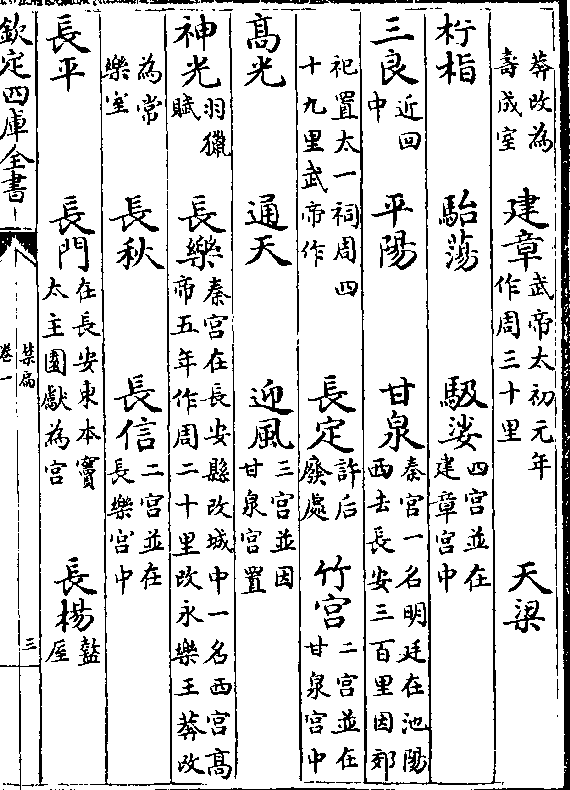 莽改為壽成室 建章 武帝太初元年作周三十里 天梁
枍栺 駘蕩 馺娑 四宮並在建章宮中
三良 近回中 平陽 甘泉 秦宮一名明廷在池陽西去長安三百里因郊
祀置太一祠周四十九里武帝作 長定 許后廢處 竹宮 二宮並在甘泉宮中
高光 通天 迎風 三宮並因甘泉宮置
神光 羽獵賦 長樂 秦宮在長安縣故城中一名西宮高帝五年作周二十里改永樂王莽改
為常樂室 長秋 長信 二宮並在長樂宮中
長平 長門 在長安東本竇太主園獻為宮 長楊 盩厔
欽定四庫全書 禁扁卷一 三